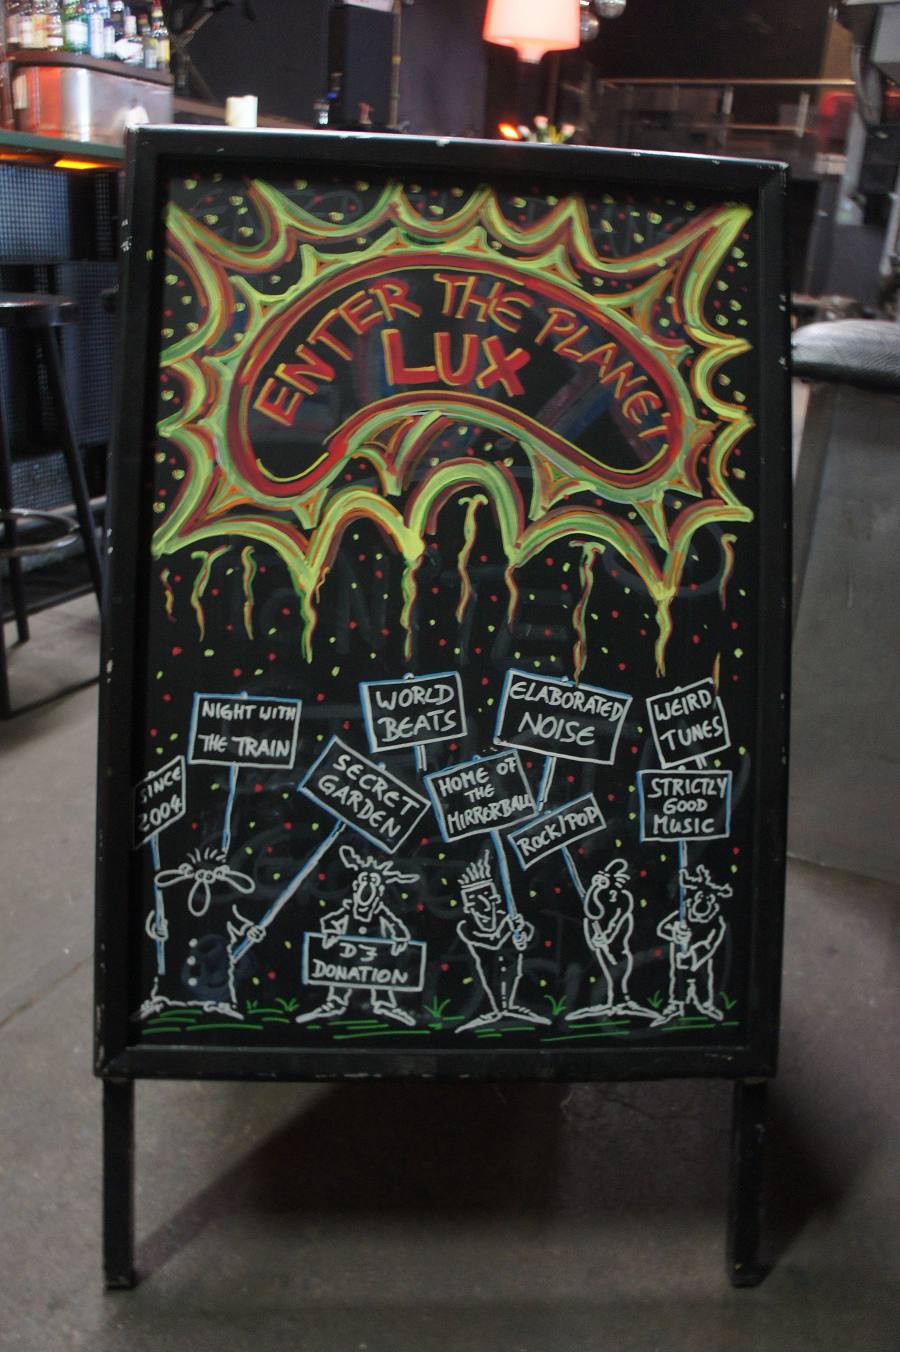 ENTER THE PLANET
LUX
NIGHT WITH
THE TRAIN
WORLD
BEATS
ELABORATED
NOISE
WEIRD
TUNES
SINCE
2004
SECRET
GARDEN
HOME OF
THE
MIRRORBALL
ROCK/POP
STRICTLY
GOOD
MUSIC
DJ
DONATION